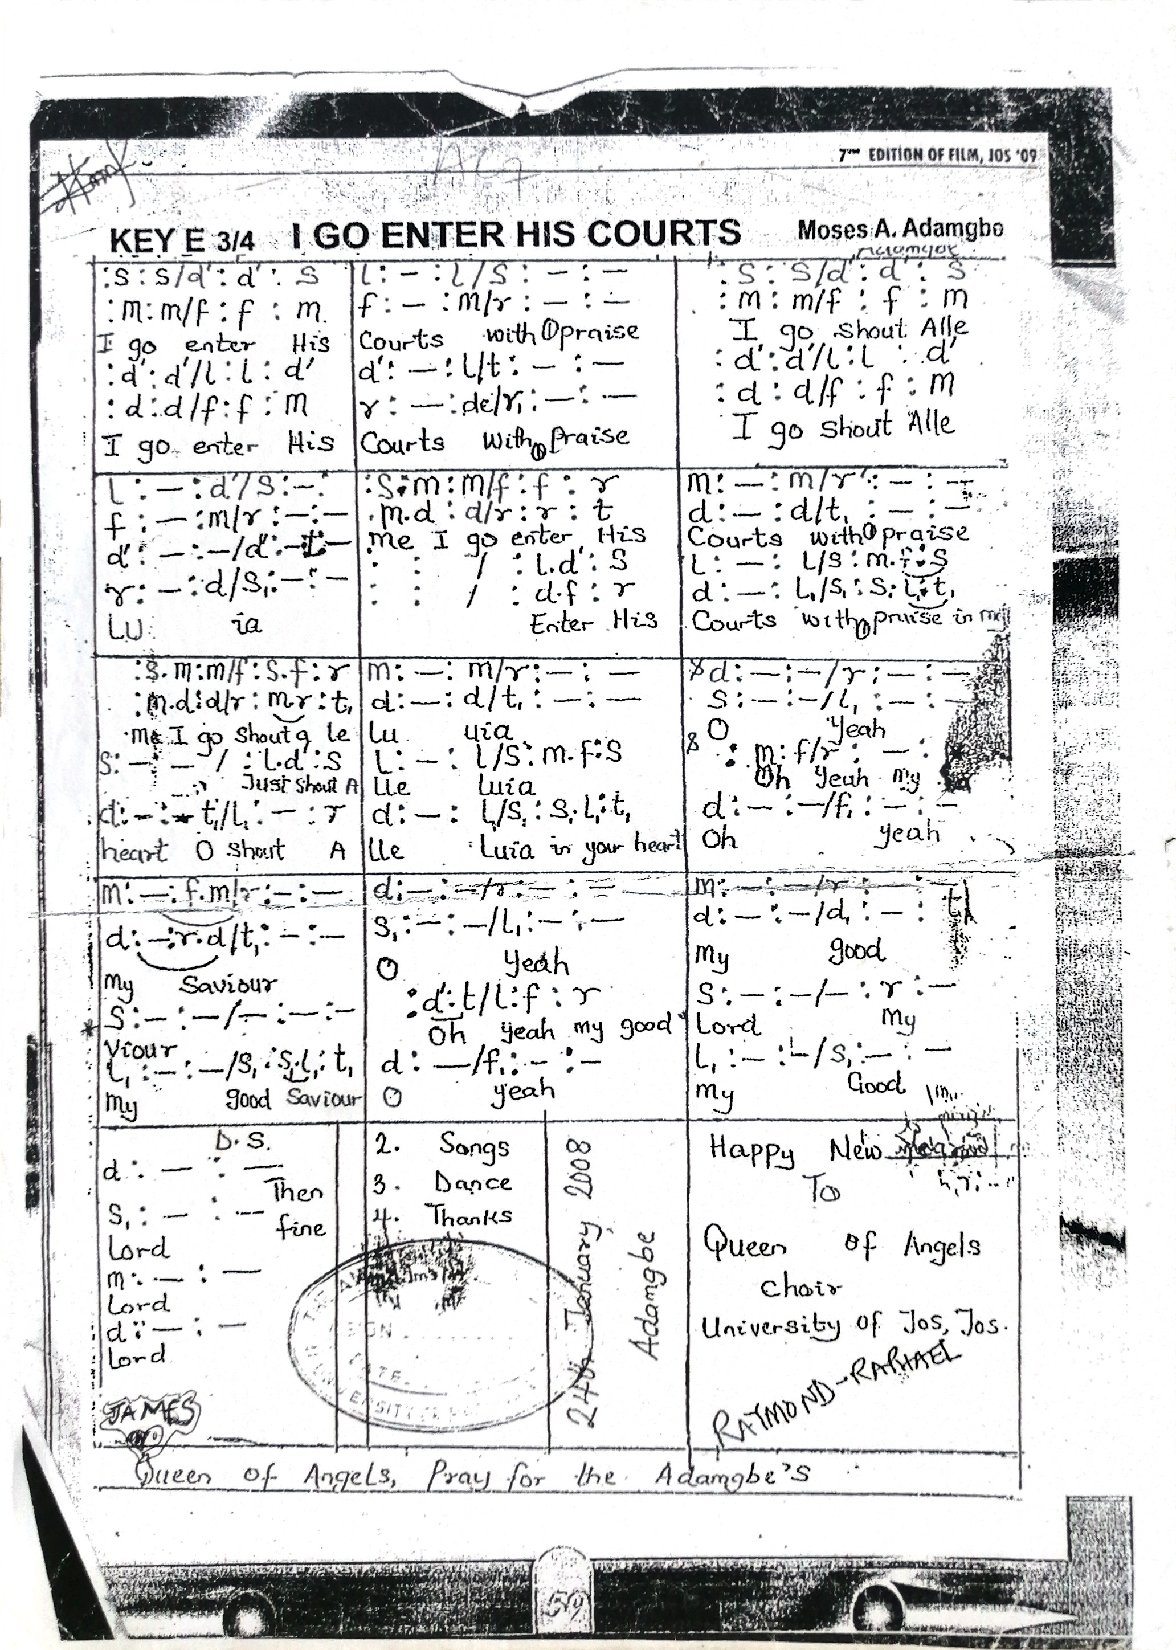 7TH EDITION OF FILM, JOS '09
KEY E 3/4 I GO ENTER HIS COURTS Moses A. Adamgbo
:S : S/d' : d' : S
:m : m/f : f : m
I go enter His
:d' : d'/l : l : d'
:d : d/f : f : m
I go enter His
l : — : l/S : — : —
f : — : m/r : — : —
Courts with praise
d' : — : l/t : — : —
r : — : de/r, : — : —
Courts with Praise
:S : S/d' : d' : S
:m : m/f : f : m
I go shout Alle
:d' : d'/l : l : d'
:d : d/f : f : m
I go shout Alle
l : — : d'/S : — :
f : — : m/r : — : —
d' : — : —/d' : — t —
r : — : d/S, : — : —
Lu ia
:S.m : m/f : f : r
.m.d : d/r : r : t
me I go enter His
: : / : l.d' : S
: : / : d.f : r
Enter His
m : — : m/r : — : —
d : — : d/t, : — : —
Courts with praise
L : — : L/S : m.f : S
d : — : L,/S, : S, : L, : t,
Courts with praise in my
:S.m : m/f : S.f : r
:m.d : d/r : m.r : t,
me I go shout a le
S : — — / : l.d' : S
Just shout A
d : — : t,/L, : — : r
heart O shout A
m : — : m/r : — : —
d : — : d/t, : — : —
Lu uia
L : — : L/S : m.f : S
lle luia
d : — : L,/S, : S, L, : t,
lle Luia in your heart
d : — : —/r : — : —
S : — : —/L, : — : —
O Yeah
: m : f/r : — :
Oh Yeah my
d : — : —/f, : — : —
Oh yeah
m : — : f.m/r : — : —
d : — : r.d/t, : — : —
My Saviour
S : — : —/— : — : —
Viour
L, : — : —/S, : S, L, : t,
My good Saviour
d : — : —/r : — : —
S, : — : —/L, : — : —
O Yeah
: d' : t/l : f : r
Oh yeah my good
d : —/f, : — : —
O yeah
m : — : —/r : — : —
d : — : —/d, : — : t,
My good
S : — : —/— : r : —
Lord My
L, : — : —/S, : — : —
My Good
D.S.
d : — : —
Then
S, : — : —
fine
Lord
m : — : —
Lord
d : — : —
Lord
JAMES
2. Songs
3. Dance
4. Thanks
24th January 2008
Adamgbe
Happy New
To
Queen of Angels
Choir
University of Jos, Jos.
RAYMOND-RAPHAEL
Queen of Angels, Pray for the Adamgbe's